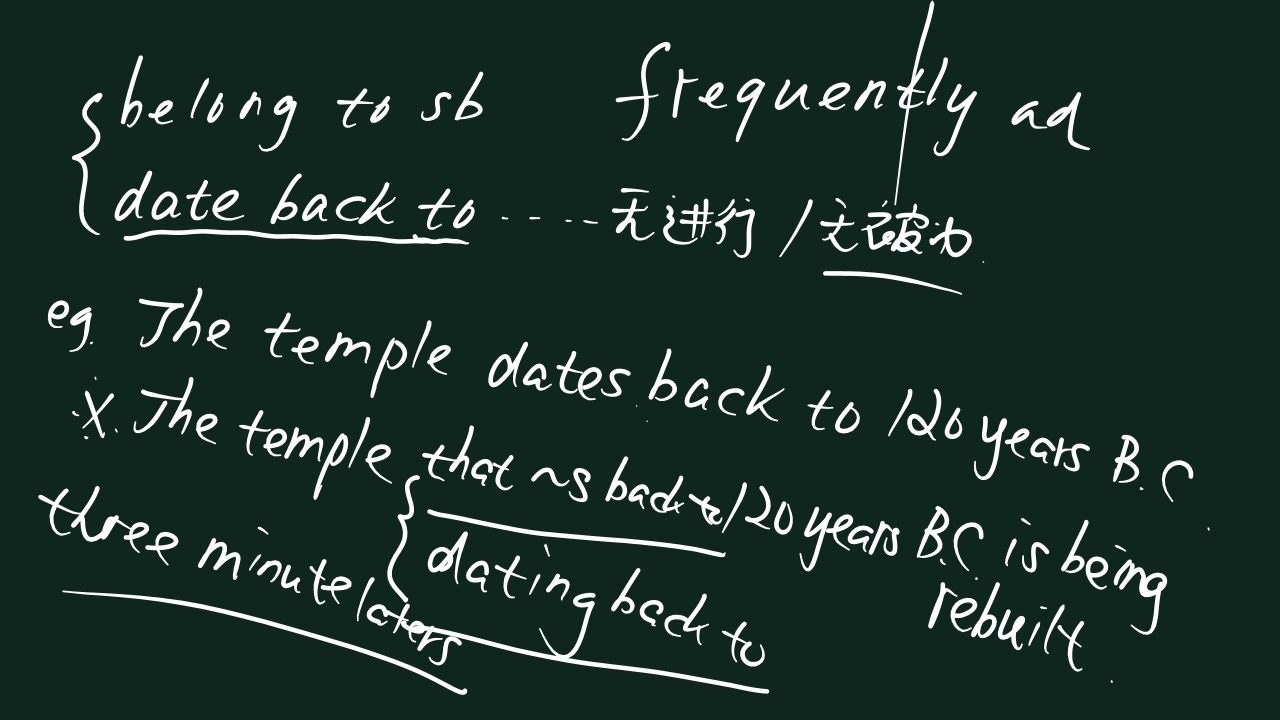 belong to sb frequently ad
date back to ····无进行/无被动
eg. The temple dates back to 120 years B.C
※. The temple that ~s back to 120 years B.C. is being rebuilt
dating back to
three minute laters